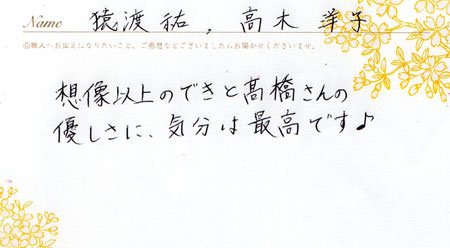 Name 猿渡 祐 , 高木 洋子
◎職人へお伝えになりたいこと、ご感想などございましたらお聞かせくださいませ。
想像以上のできと高橋さんの
優しさに、気分は最高です♪